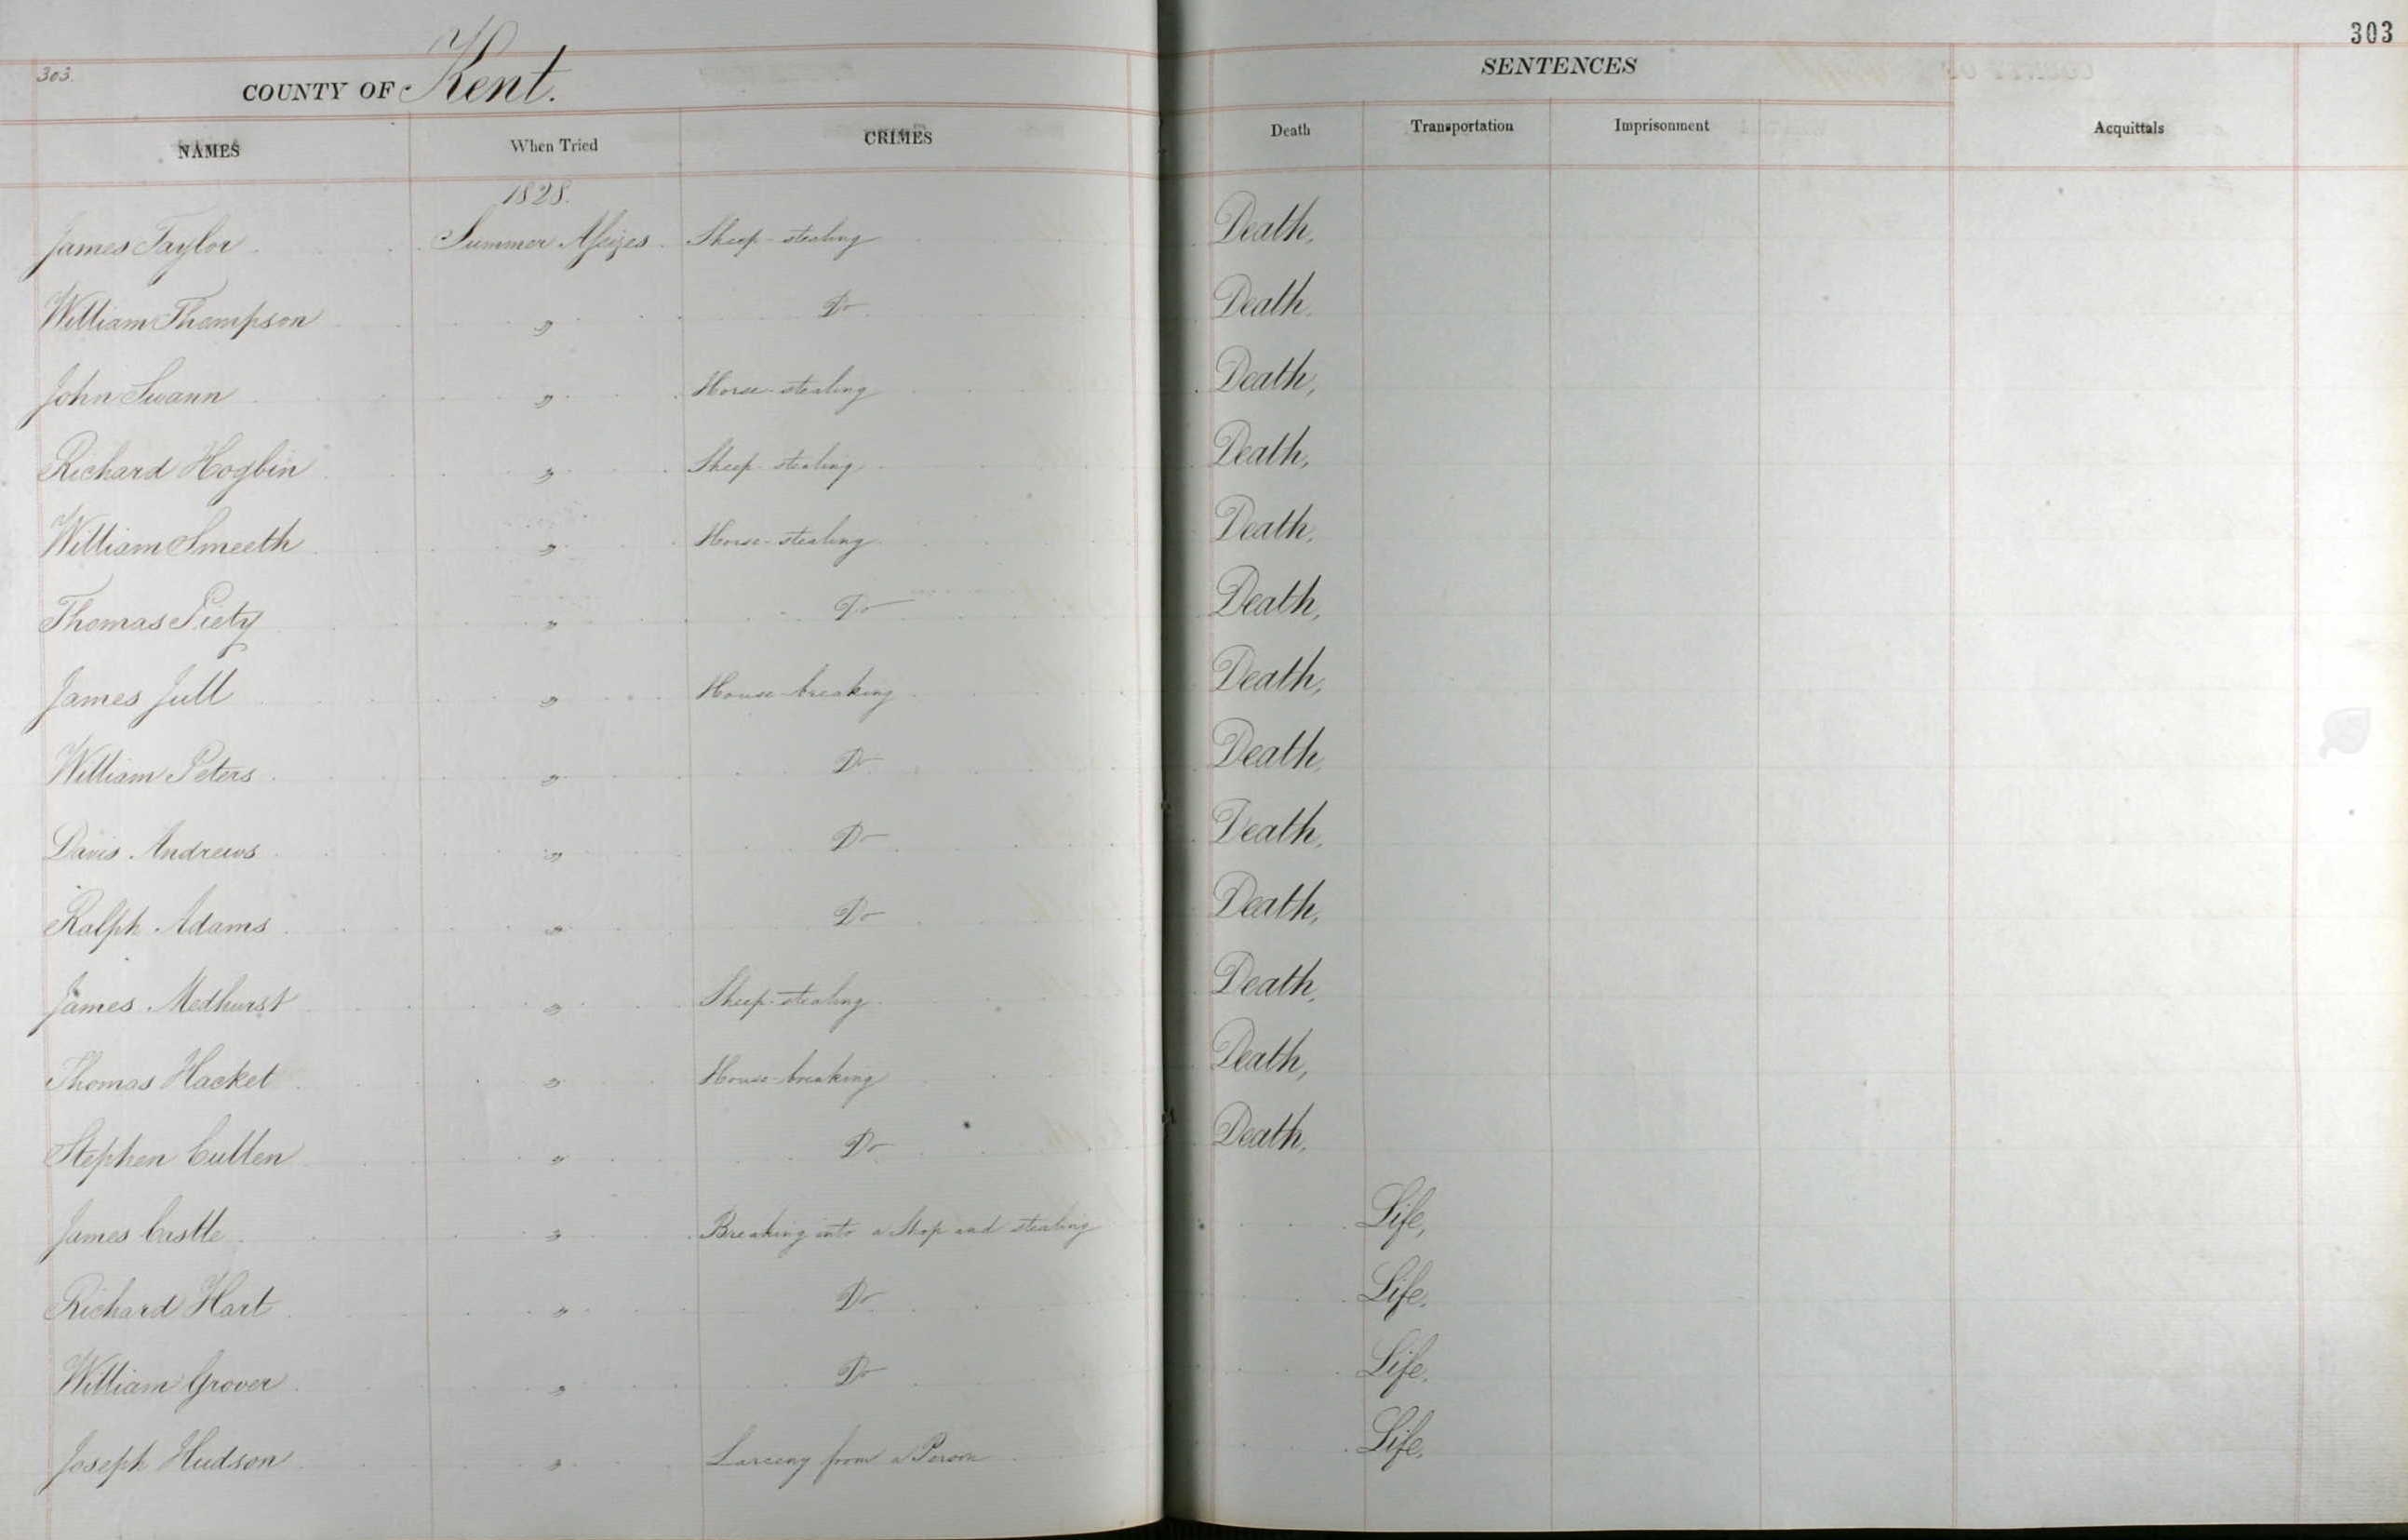 303
303.
COUNTY OF Kent.
SENTENCES
NAMES When Tried CRIMES Death Transportation Imprisonment Acquittals
1828.
James Taylor Summer Assizes Sheep-stealing Death,
William Thompson " Do Death.
John Swann " Horse-stealing Death,
Richard Hogbin " Sheep-stealing Death,
William Smeeth " Horse-stealing Death,
Thomas Piety " Do Death,
James Jull " House-breaking Death,
William Peters " Do Death,
Davis Andrews " Do Death,
Ralph Adams " Do Death,
James Medhurst " Sheep-stealing Death,
Thomas Hacket " House-breaking Death,
Stephen Cullen " Do Death,
James Castle " Breaking into a Shop and stealing Life,
Richard Hart " Do Life.
William Grover " Do Life.
Joseph Hudson " Larceny from a Person Life.